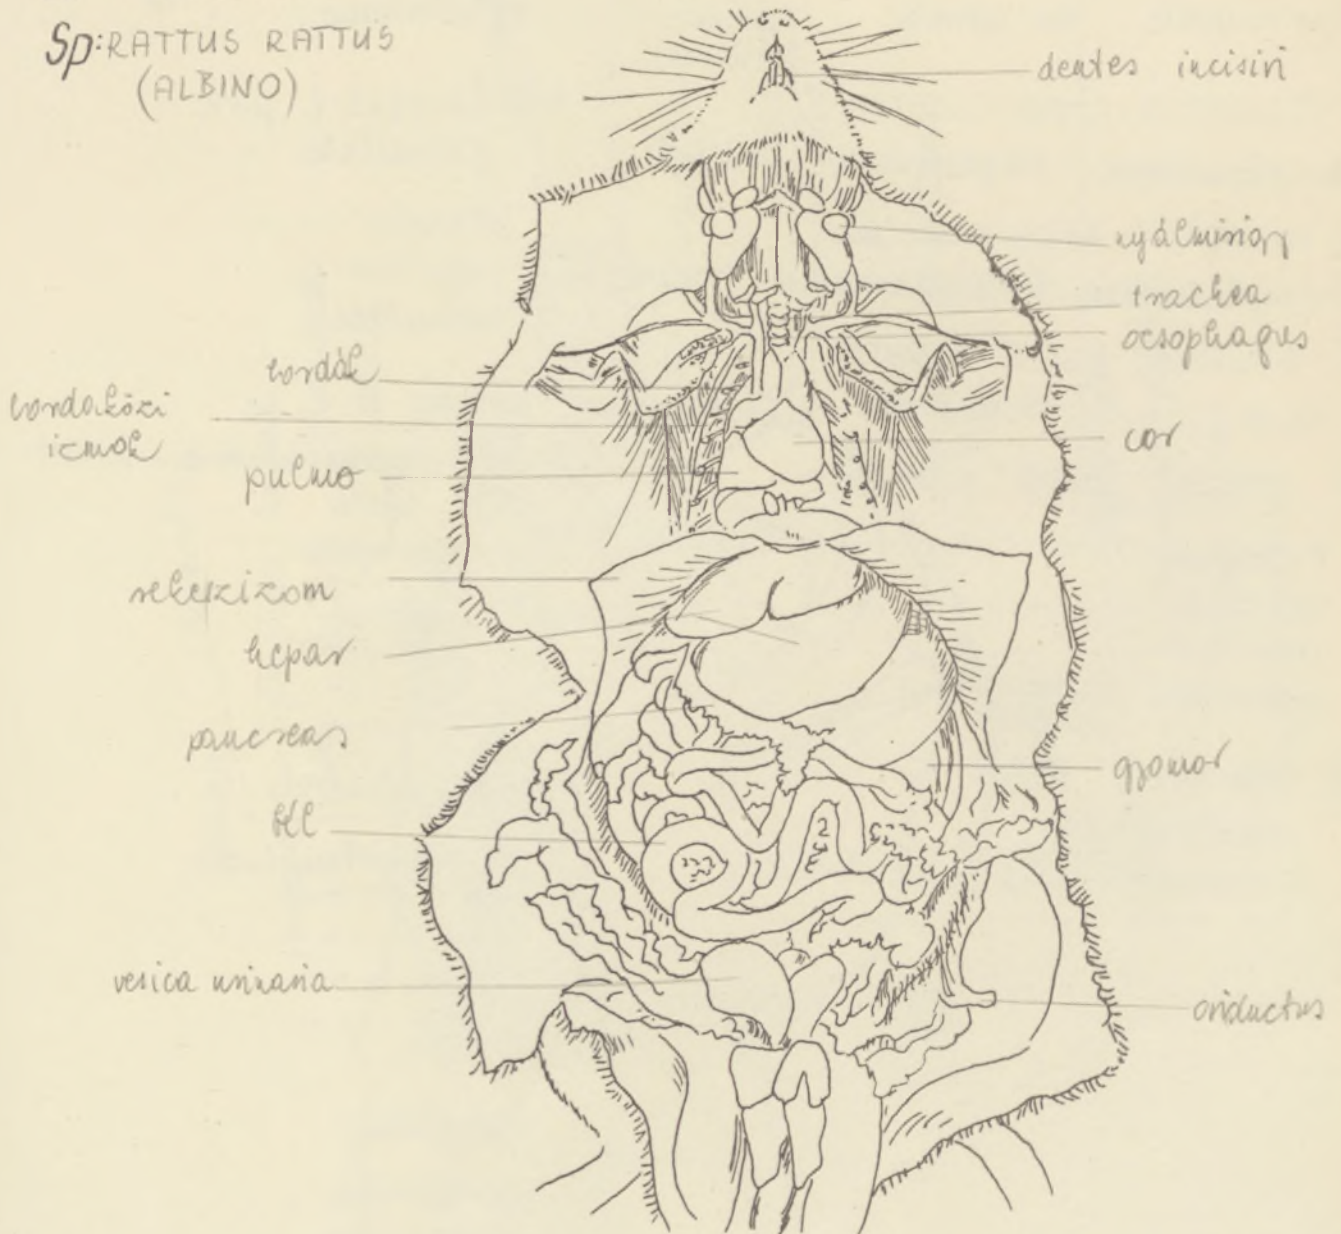 Sp: RATTUS RATTUS
(ALBINO)
dentes incisivi
nyálmirigy
trachea
oesophagus
bordák
bordaközi
izmok
cor
pulmo
rekeszizom
hepar
pancreas
gyomor
bél
vesica urinaria
oviductus